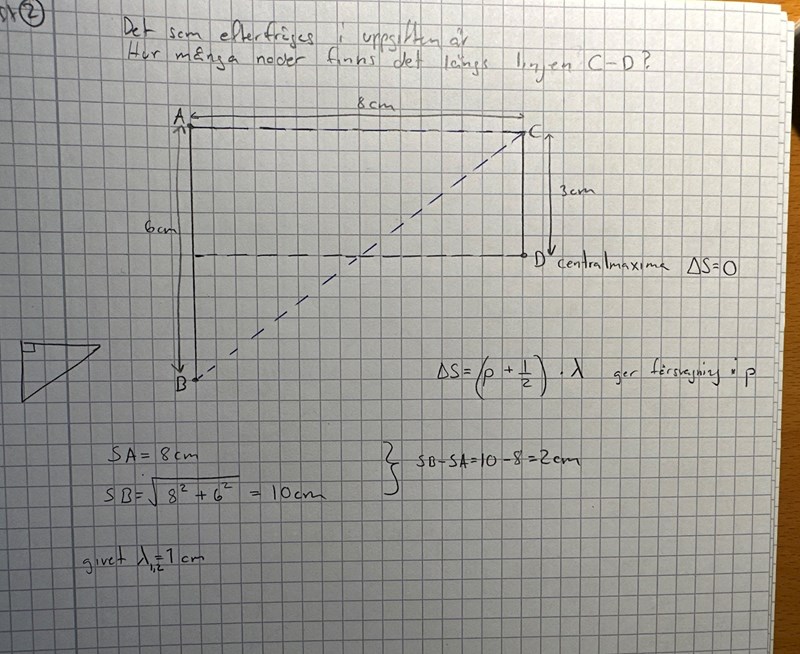 2
Det som efterfrågas i uppgiften är
Hur många noder finns det längs linjen C-D?
8cm
A
C
3cm
6cm
D centralmaxima ΔS=0
B
ΔS=(p+1/2)·λ ger försvagning i p
SA= 8cm
SB-SA=10-8=2cm
SB=√8²+6² = 10cm
givet λ1,2=1cm